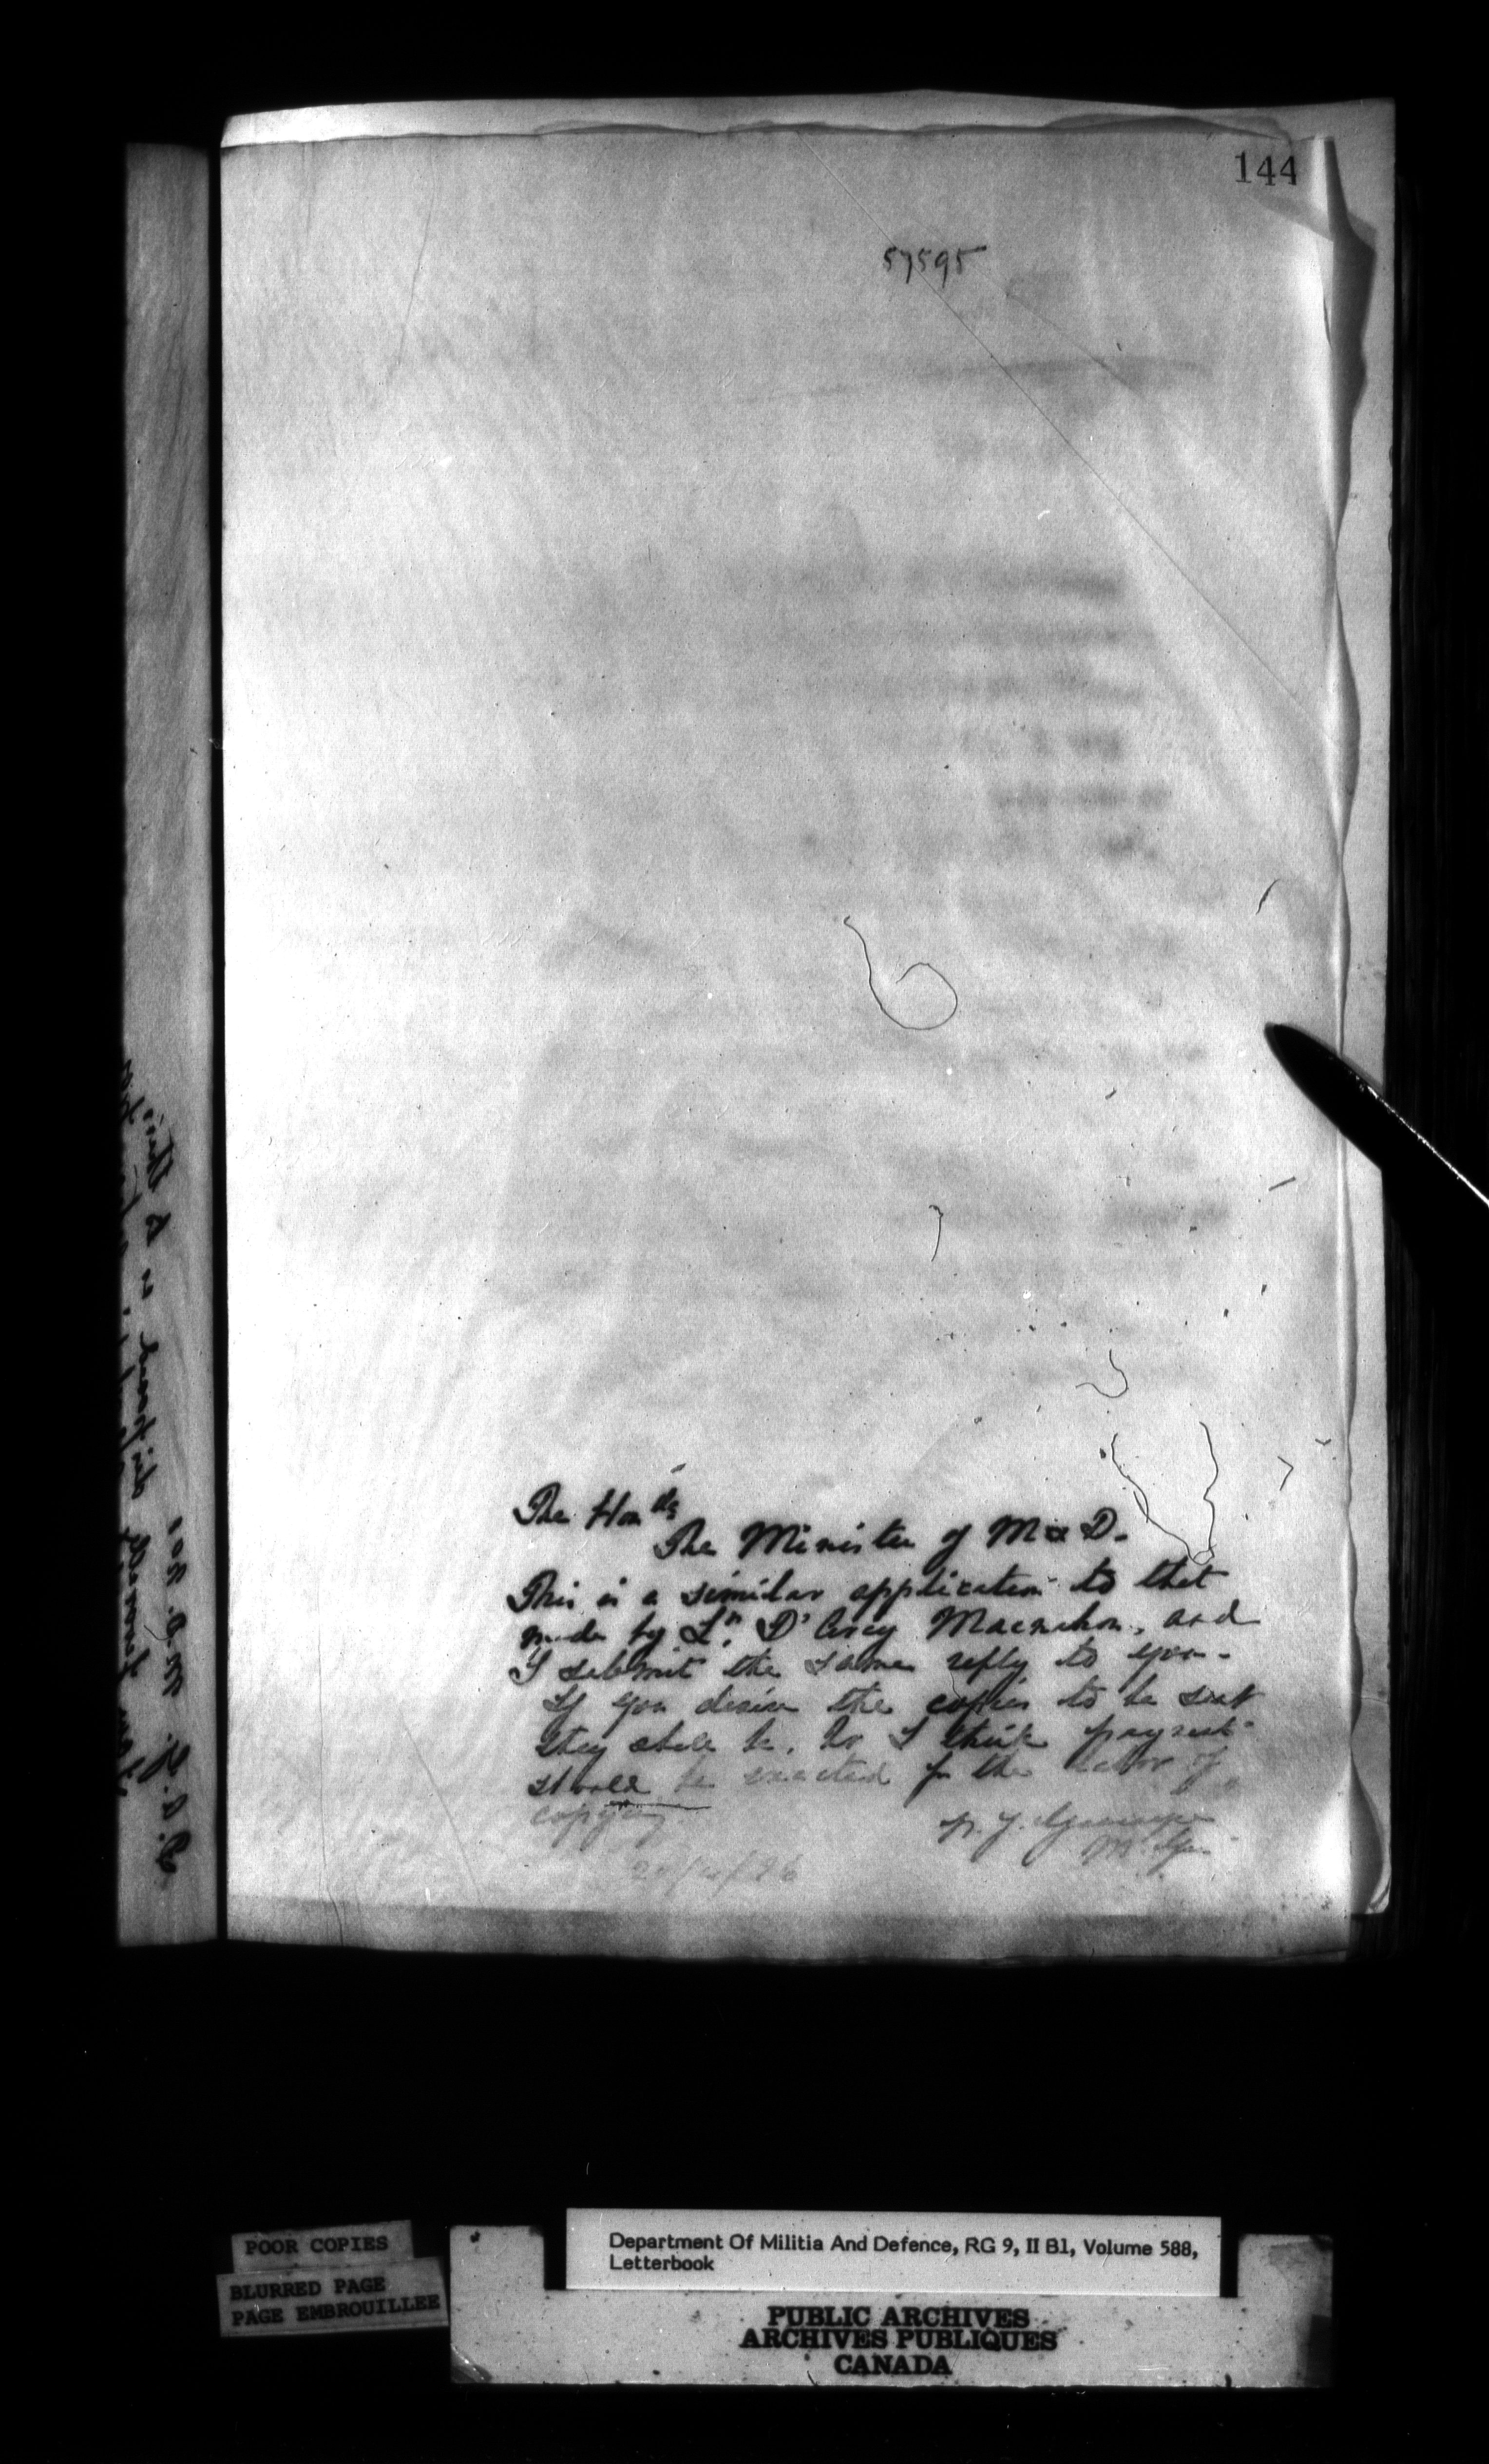 144
57595
The Honble
The Minister of M & D.
This is a similar application to that
made by Lt. D'Arcy Macmahon, and
I submit the same reply to you.
If you desire the copies to be sent
they shall be. But I think payment
should be exacted for the labor of
copying
M. Gen.
20/4/96
POOR COPIES
BLURRED PAGE
PAGE EMBROUILLEE
Department Of Militia And Defence, RG 9, II B1, Volume 588,
Letterbook
PUBLIC ARCHIVES
ARCHIVES PUBLIQUES
CANADA